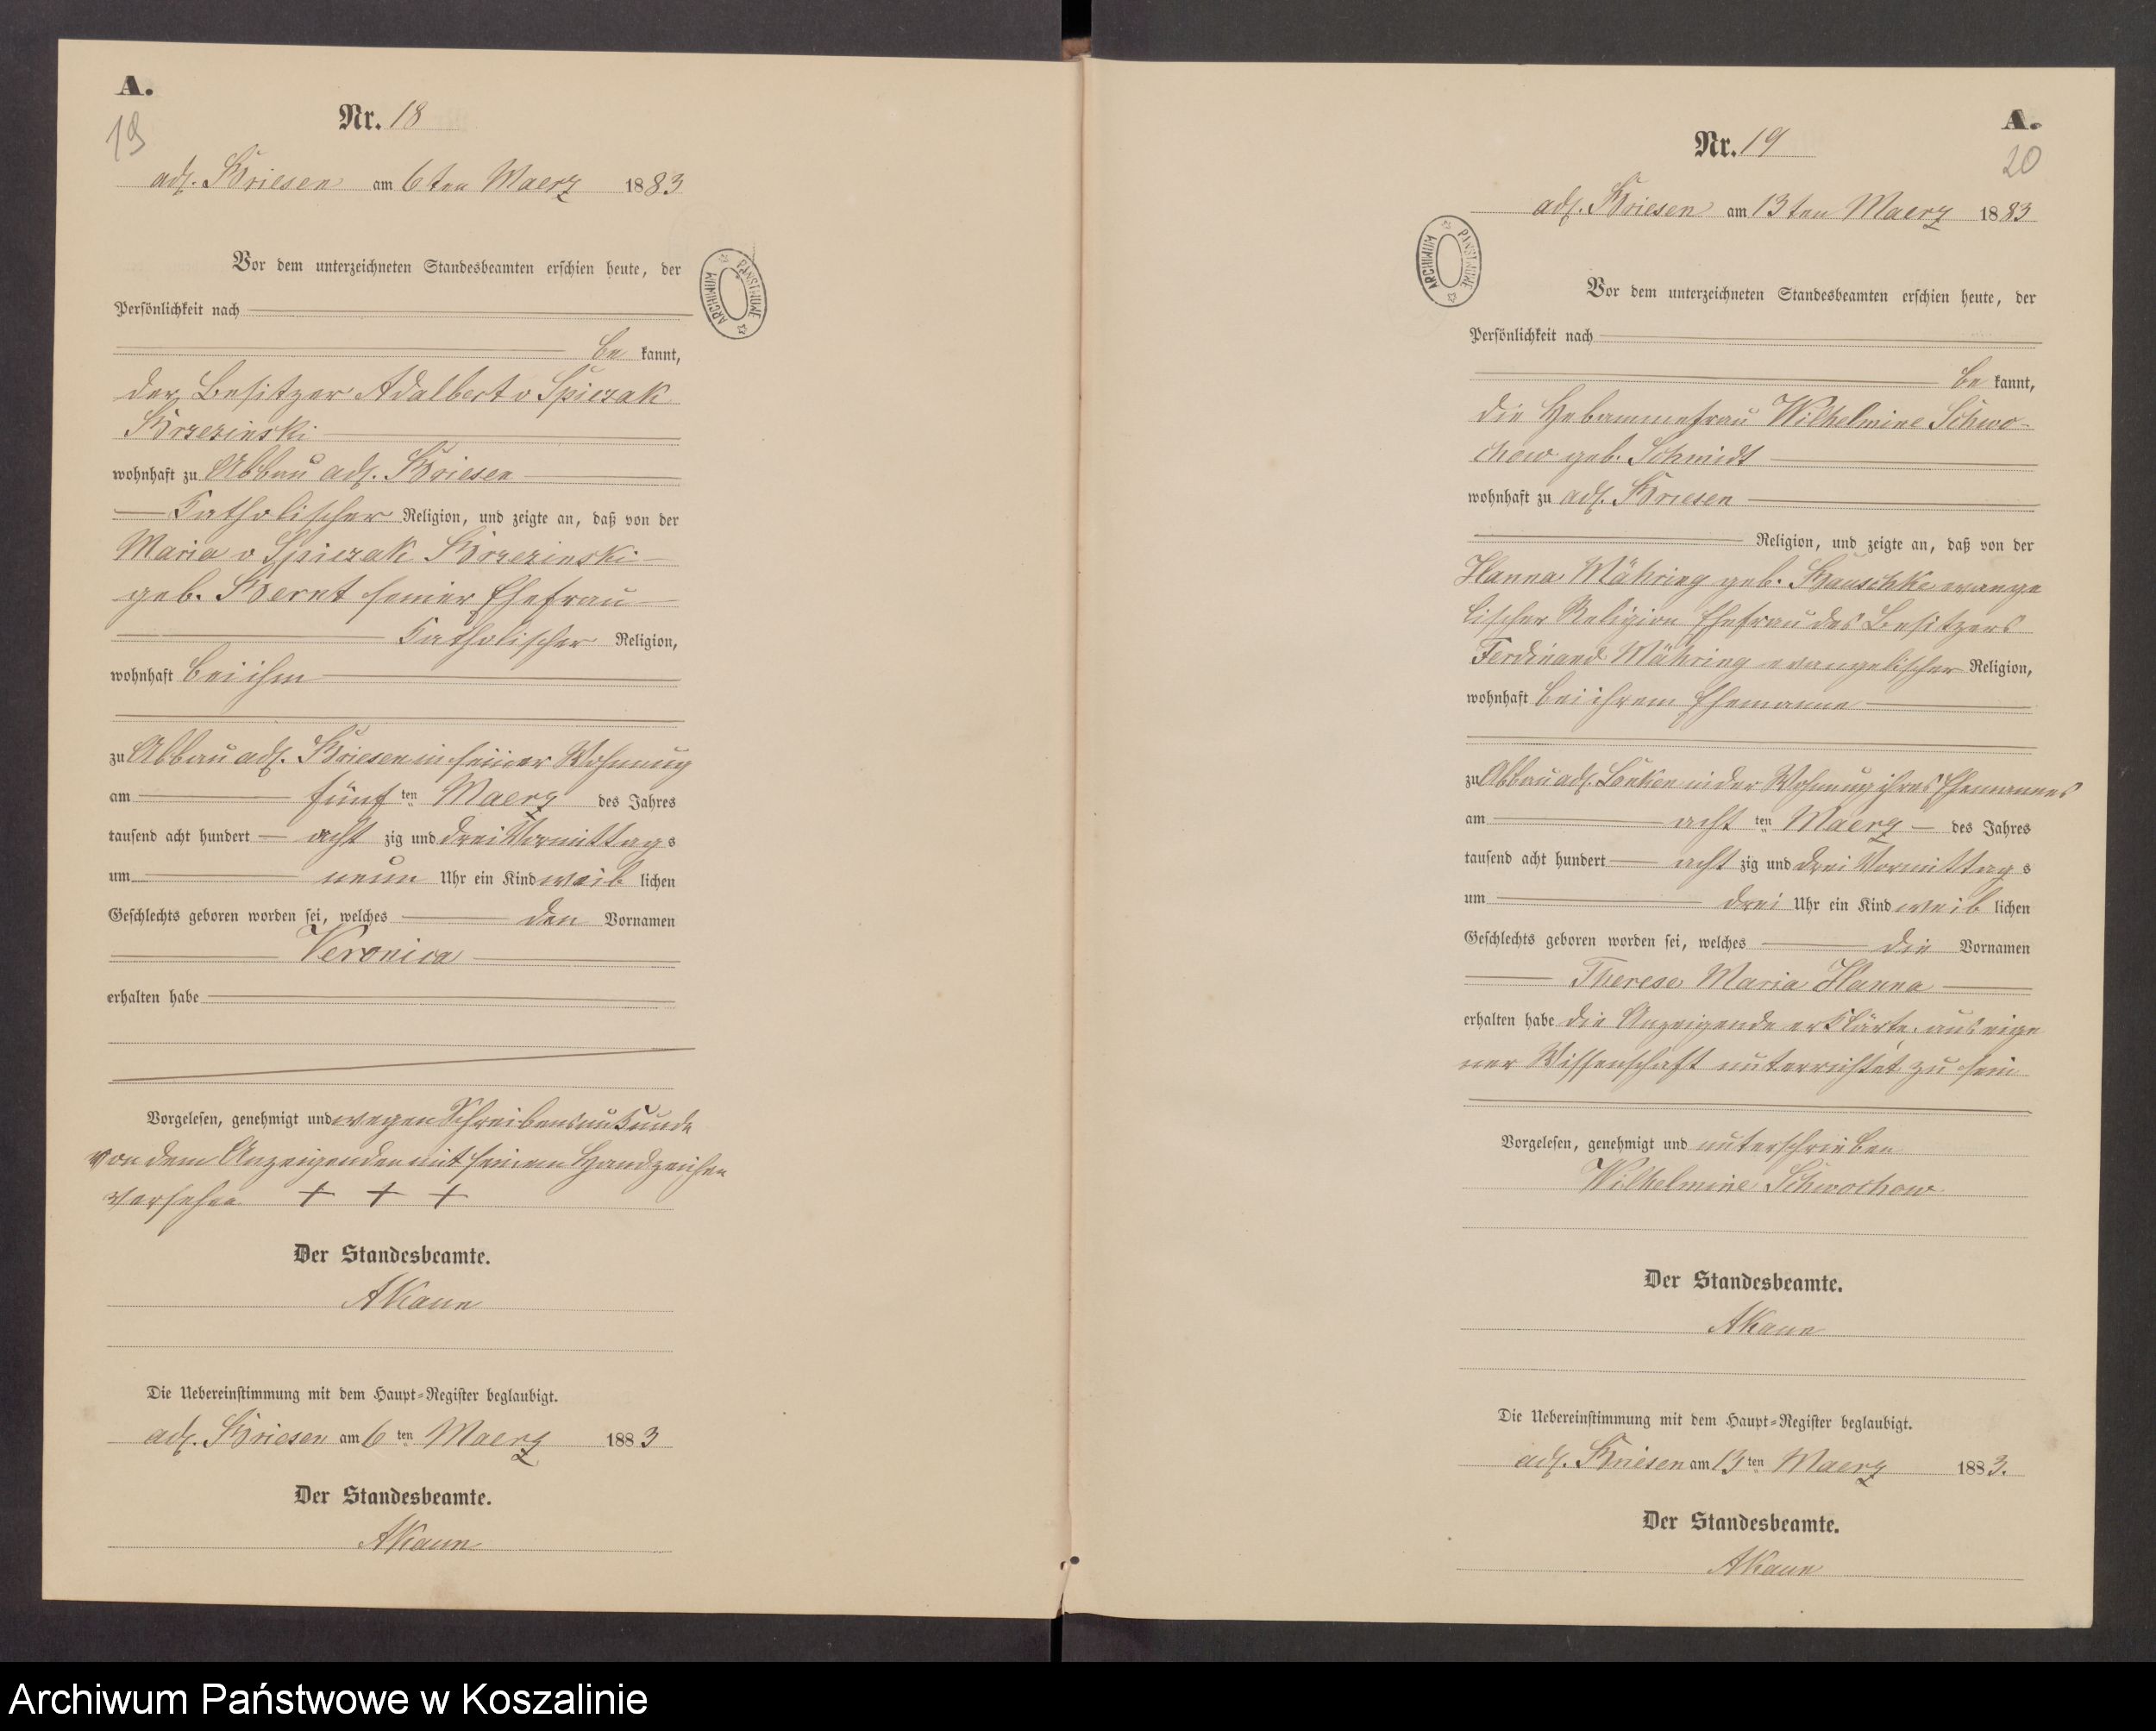 A.
19
Nr. 18
adl. Briesen am 6ten Maerz 1883
Vor dem unterzeichneten Standesbeamten erschien heute, der
Persönlichkeit nach
be kannt,
der Besitzer Adalbert v Spiczak
Brzezinski
wohnhaft zu Abbau adl. Briesen
Katholischer Religion, und zeigte an, daß von der
Maria v Spiczak Brzezinski
geb. Bernt seiner Ehefrau
Katholischer Religion,
wohnhaft bei ihm
zu Abbau adl. Briesen in seiner Wohnung
am fünf ten Maerz des Jahres
tausend acht hundert acht zig und drei Vormittags
um neun Uhr ein Kind weib lichen
Geschlechts geboren worden sei, welches den Vornamen
Veronica
erhalten habe
Vorgelesen, genehmigt und wegen Schreibensunkunde
von dem Anzeigenden mit seinem Handzeichen
versehen + + +
Der Standesbeamte.
AKaun
Die Uebereinstimmung mit dem Haupt=Register beglaubigt.
adl. Briesen am 6 ten Maerz 1883
Der Standesbeamte.
AKaun
ARCHIWUM PAŃSTWOWE
A.
20
Nr. 19
adl. Briesen am 13ten Maerz 1883
Vor dem unterzeichneten Standesbeamten erschien heute, der
Persönlichkeit nach
be kannt,
die Hebammefrau Wilhelmine Schwo-
chow geb. Schmidt
wohnhaft zu adl. Briesen
Religion, und zeigte an, daß von der
Hanna Mähring geb. Bauschke evange
lischer Religion Ehefrau des Besitzers
Ferdinand Mähring evangelischer Religion,
wohnhaft bei ihrem Ehemanne
zu Abbau adl. in der Wohnung ihres Ehemannes
am acht ten Maerz des Jahres
tausend acht hundert acht zig und drei Vormittag s
um drei Uhr ein Kind weib lichen
Geschlechts geboren worden sei, welches die Vornamen
Therese Maria Hanna
erhalten habe die Anzeigende erklärte, aus eige
ner Wissenschaft unterrichtet zu sein
Vorgelesen, genehmigt und unterschrieben
Wilhelmine Schwochow
Der Standesbeamte.
AKaun
Die Uebereinstimmung mit dem Haupt=Register beglaubigt.
adl. Briesen am 13 ten Maerz 1883.
Der Standesbeamte.
AKaun
ARCHIWUM PAŃSTWOWE
Archiwum Państwowe w Koszalinie